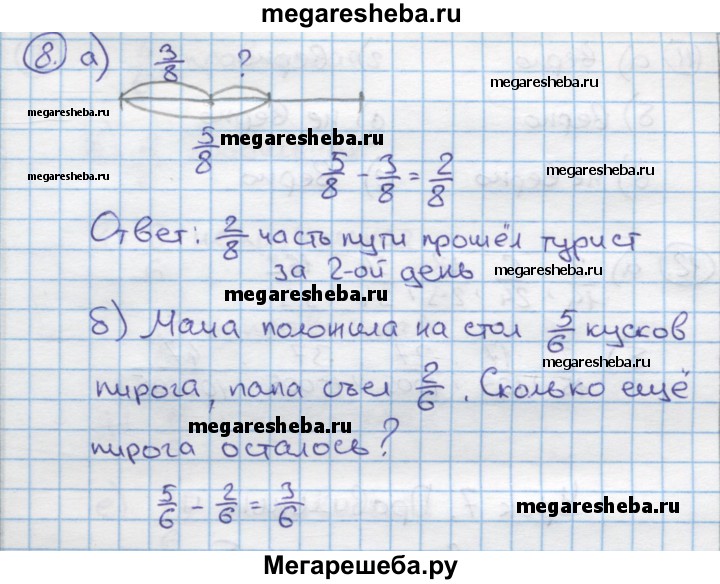 megaresheba.ru
8. а) 3/8 ?
megaresheba.ru
megaresheba.ru
megaresheba.ru
5/8
5/8 - 3/8 = 2/8
megaresheba.ru
Ответ: 2/8 часть пути прошёл турист
за 2-ой день
megaresheba.ru
megaresheba.ru
б) Мама положила на стол 5/6 кусков
megaresheba.ru
пирога, папа съел 2/6. Сколько ещё
megaresheba.ru
пирога осталось?
5/6 - 2/6 = 3/6
megaresheba.ru
Мегарешеба.ру